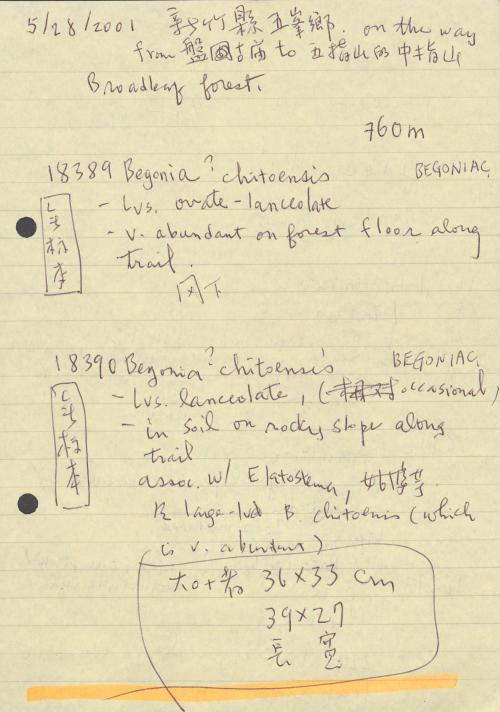 5/28/2001 新竹縣五峯鄉. on the way
from 盤古廟 to 五指山的中指山
Broadleaf forest.
760m
18389 Begonia ? chitoensis BEGONIAC.
- Lvs. ovate-lanceolate
- v. abundant on forest floor along
trail.
標本
18390 Begonia ? chitoensis BEGONIAC.
- Lvs. lanceolate, (occasional)
- in soil on rocky slope along
trail
assoc. w/ Elatostema,
large-lvd B. chitoensis (which
is v. abundant)
標本
36×33 cm
39×27
長 寬